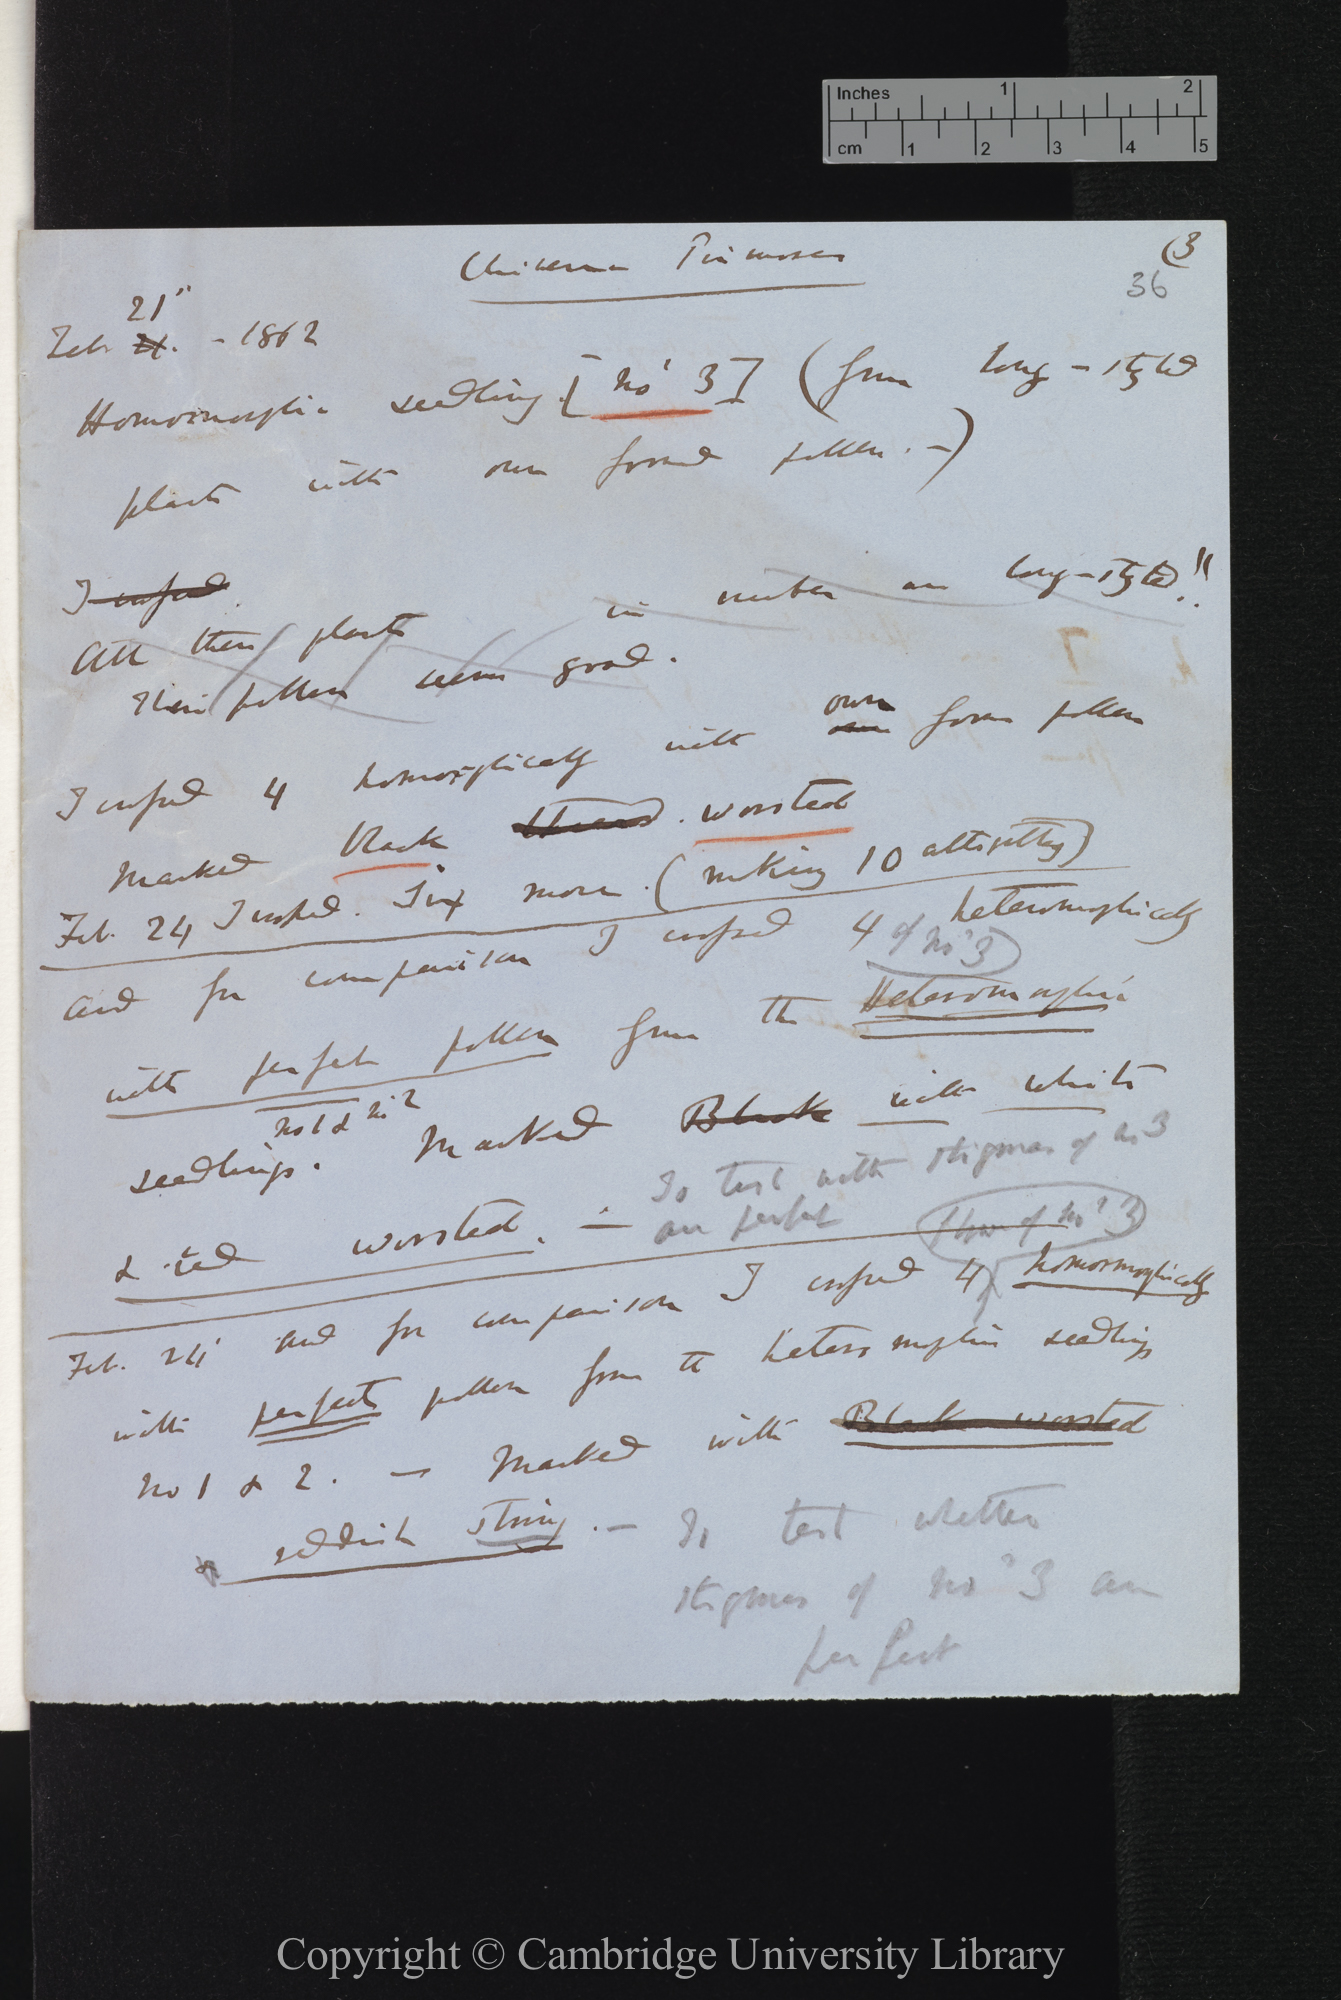 Inches 1 2
cm 1 2 3 4 5
Chinese Primroses
(3
36
21st
Feb. 21. - 1862
Homomorphic seedling. [No 3] (from long-styled
plants with own formed pollen. -)
I crossed
All these plants in number are long-styled!!
Their pollen seems good.
own
I crossed 4 homorphically with own form pollen
Marked black thread. worsted
Feb. 24 I crossed. Six more. (making 10 altogether)
and for comparison I crossed 4 of No 3 heteromorphically
with perfect pollen from the Heteromorphic
No 1 & No 2
seedlings. Marked Black with white
& red worsted. — To test with stigmas of No 3
are perfect
Those of No 3
Feb. 24 and for comparison I crossed 4 homormophically
with perfect pollen from the heteromorphic seedlings
No 1 & 2. — Marked with Black worsted
reddish string. — To test whether
stigmas of No 3 are
perfect
Copyright © Cambridge University Library